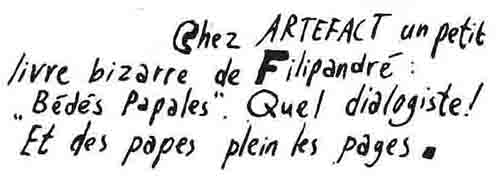 Chez ARTEFACT un petit
livre bizarre de Filipandré :
„Bédés Papales". Quel dialogiste!
Et des papes plein les pages.